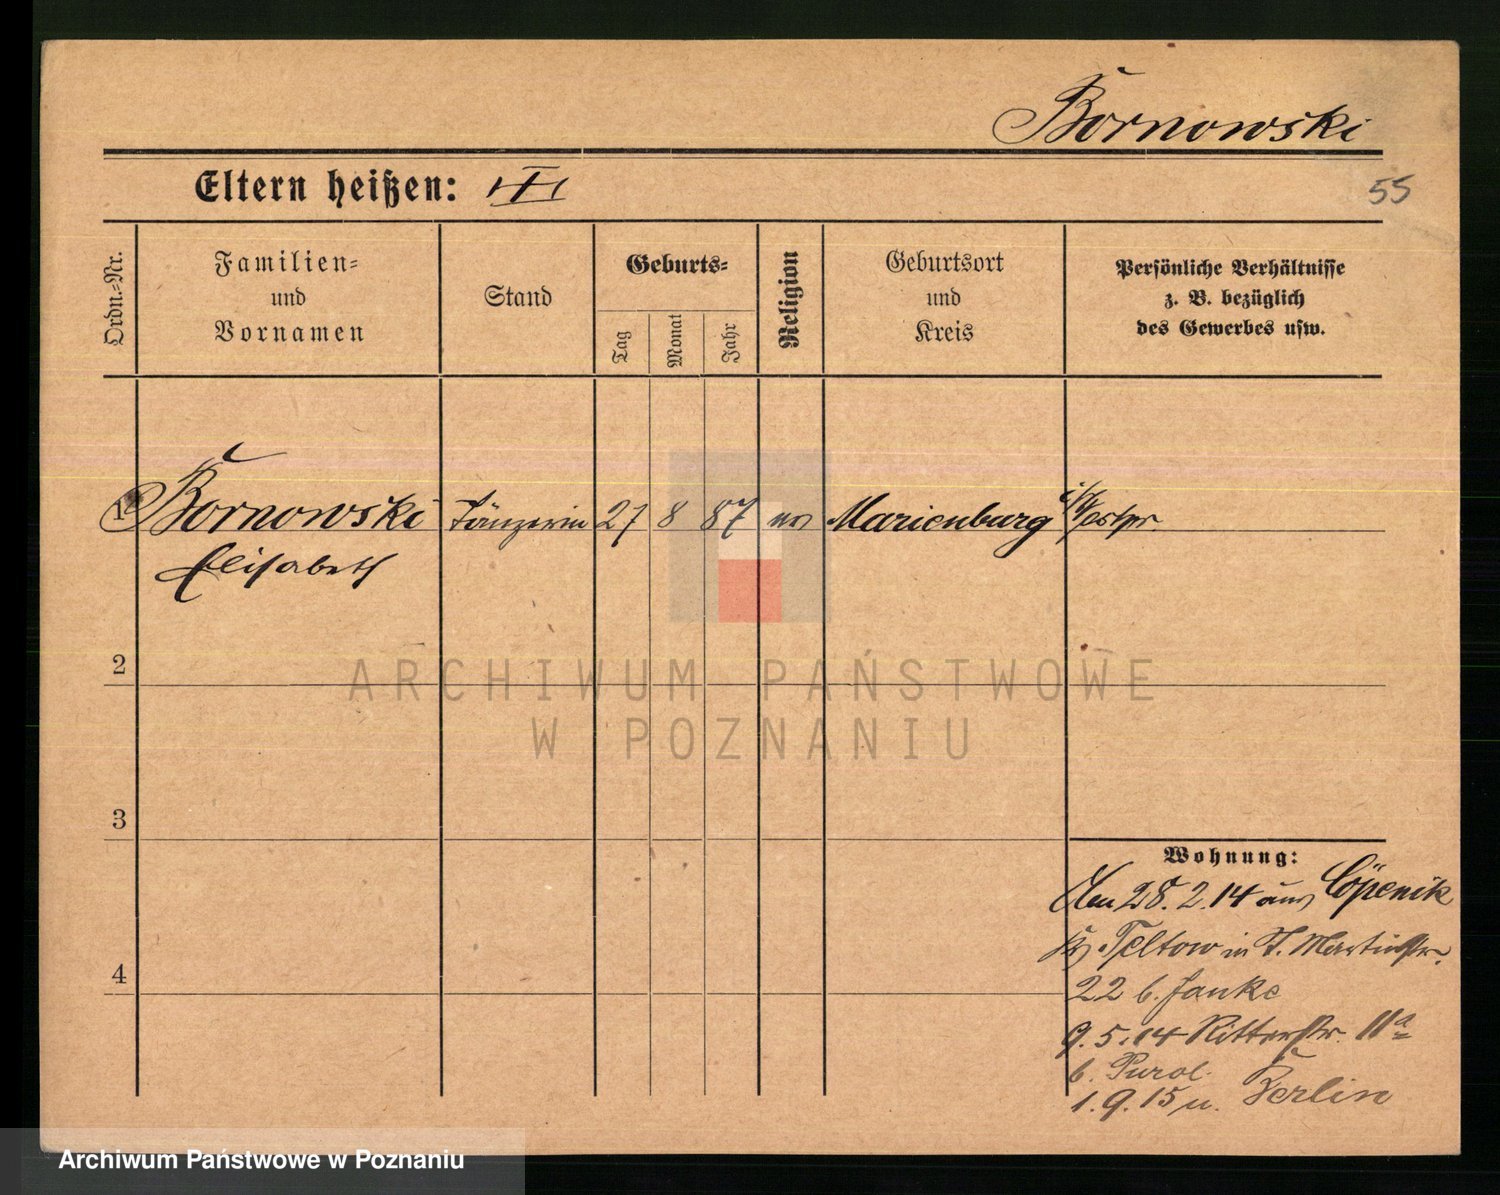 Bornowski
Eltern heißen: III
55
Ordn.-Nr.
Familien-
und
Vornamen
Stand
Geburts-
Tag
Monat
Jahr
Religion
Geburtsort
und
Kreis
Persönliche Verhältnisse
z. B. bezüglich
des Gewerbes usw.
1 Bornowski Tänzerin 27 8 87 Marienburg Westpr.
Elisabeth
2
3
4
Wohnung:
Am 28.2.14 aus Cöpenik
Teltow in St. Martinstr.
22 b. Janke
9.5.14 Ritterstr. 11a
b.
1.9.15 n. Berlin
ARCHIWUM PAŃSTWOWE
W POZNANIU
Archiwum Państwowe w Poznaniu